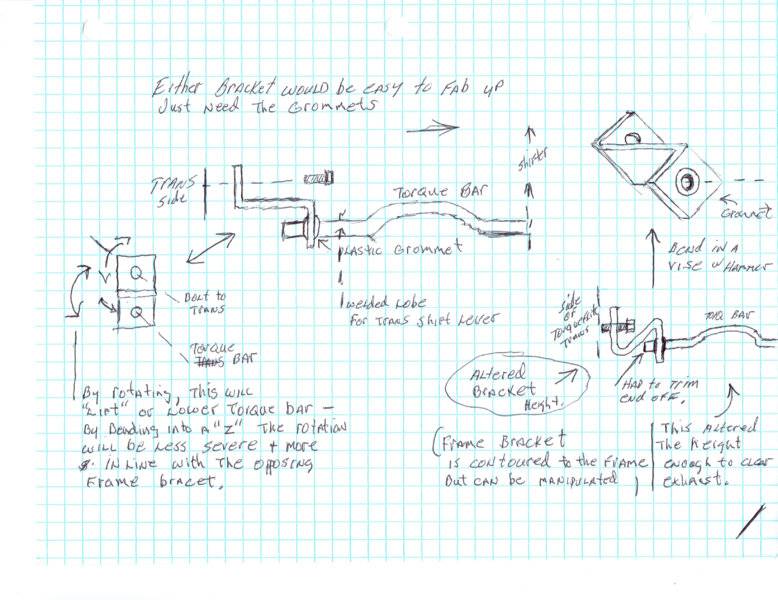 Either Bracket would be easy to fab up
Just need the Grommets
Trans
side
Shifter
Torque Bar
Plastic Grommet
welded lobe
for Trans shift lever
Bolt to
Trans
Torque
Trans Bar
By rotating, this will
"Lift" or Lower Torque bar –
By Bending into a "Z" the rotation
will be less severe + more
in line with the opposing
Frame bracet.
Grommet
Bend in a
vise w/ Hammer
side
of
Torqueflite
Trans
Torq Bar
Altered
Bracket
Height.
Had to trim
end off.
(Frame Bracket
is contoured to the frame
but can be manipulated)
This altered
the height
enough to clear
exhaust.